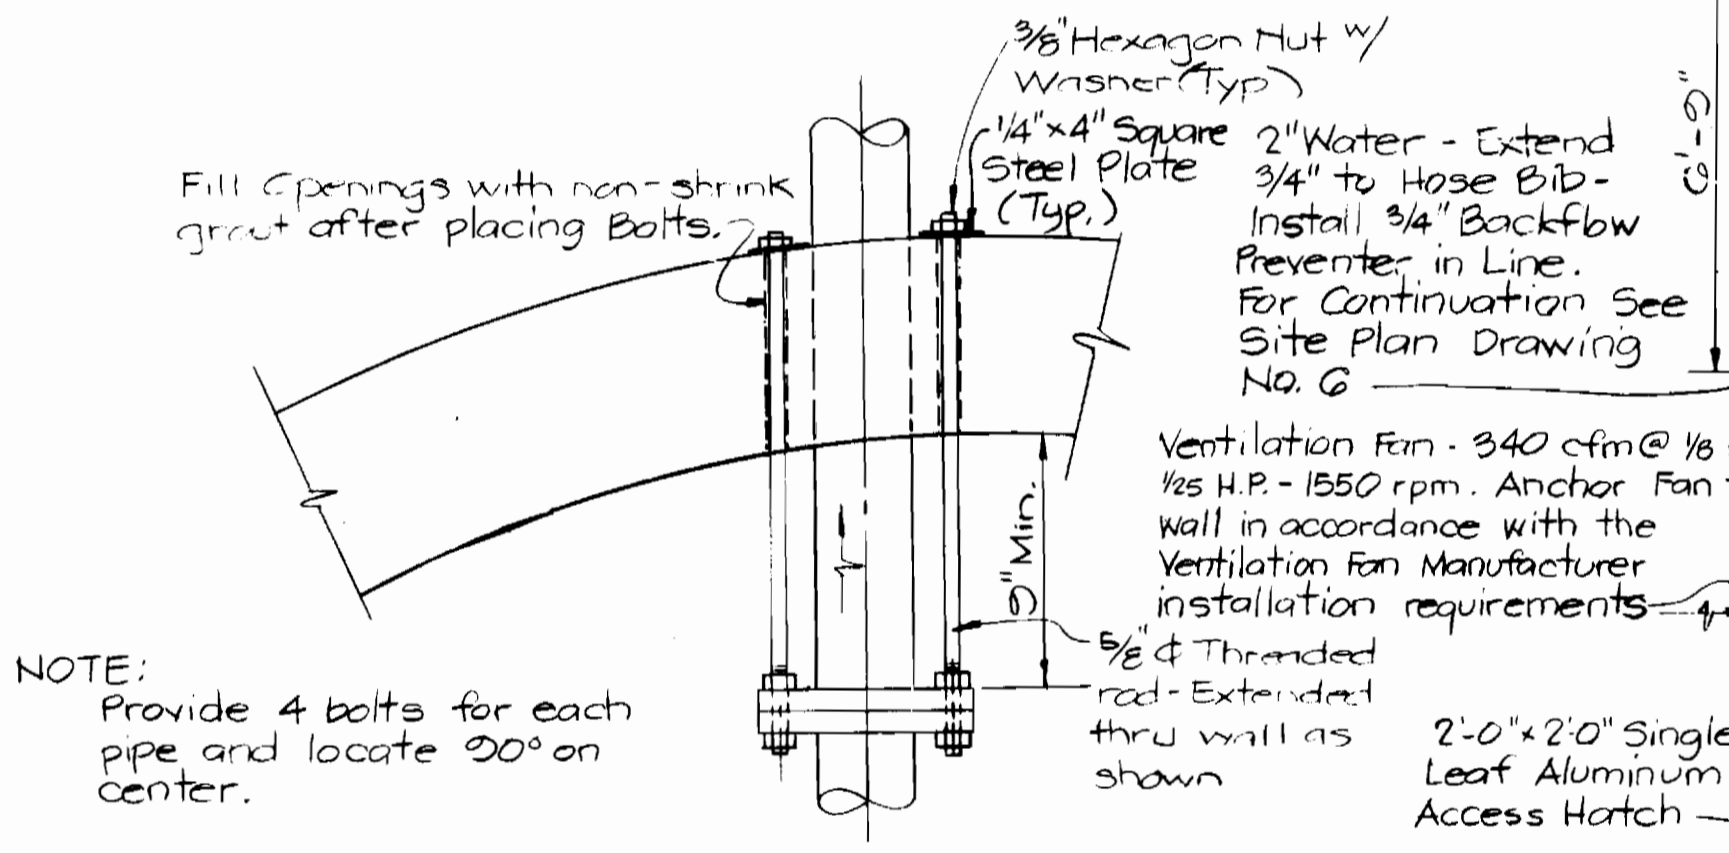 3/8" Hexagon Nut w/
Washer (Typ)
1/4" x 4" Square
Steel Plate
(Typ.)
Fill Openings with non-shrink
grout after placing Bolts.
2" Water - Extend
3/4" to Hose Bib -
Install 3/4" Backflow
Preventer in Line.
For Continuation See
Site Plan Drawing
No. 6
Ventilation Fan - 340 cfm @ 1/8
1/25 H.P. - 1550 rpm. Anchor Fan
Wall in accordance with the
Ventilation Fan Manufacturer
installation requirements
9" Min.
5/8" ¢ Threaded
rod - Extended
thru wall as
shown
NOTE:
Provide 4 bolts for each
pipe and locate 90° on
center.
2'-0" x 2'-0" Single
Leaf Aluminum
Access Hatch